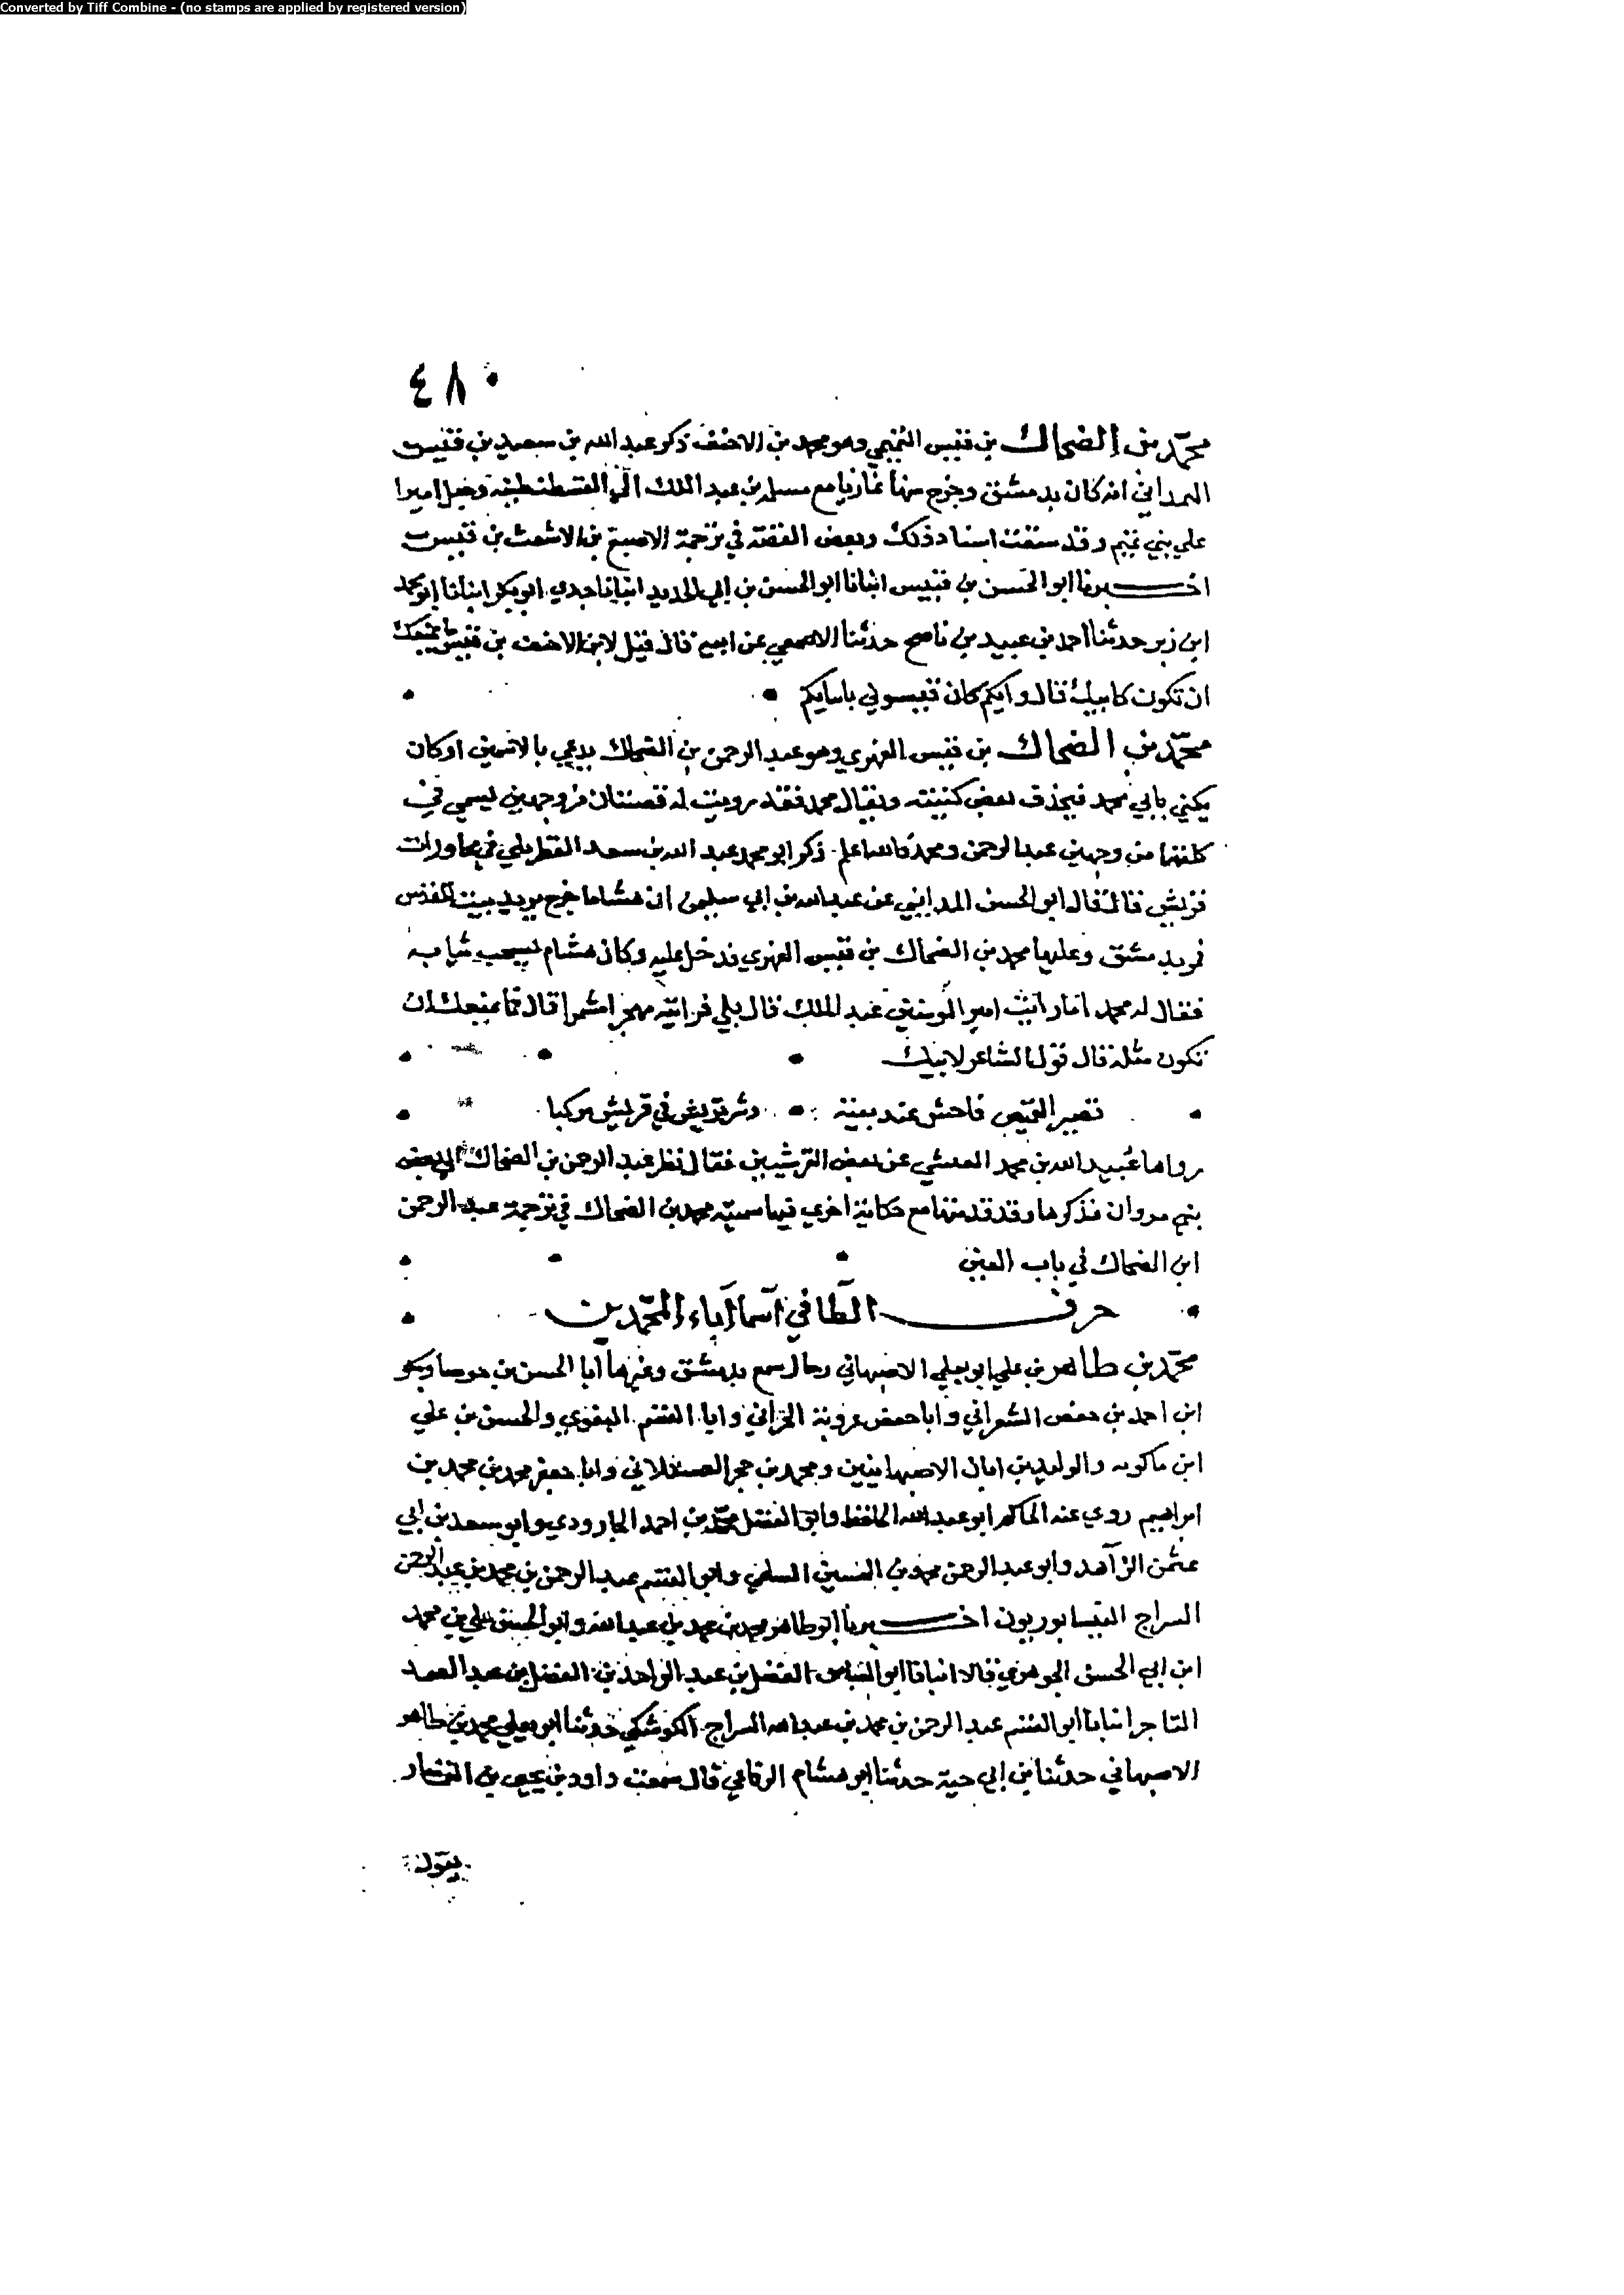 Converted by Tiff Combine - (no stamps are applied by registered version)
٤٨٠
محمد بن الضحاك بن قيس التميمي وهو محمد بن الاحنف ذكر عبد الله بن سعيد بن قيس
الهمداني انه كان بدمشق وخرج منها غازيا مع مسلمة بن عبد الملك الى القسطنطينية وجعل اميرا
على بني تميم وقد سقت اسناد ذلك وبعض القصة في ترجمة الاصبغ بن الاشعث بن قيس
اخبرنا ابو الحسن بن قبيس انبانا ابو الحسن بن ابي الحديد انبانا جدي ابو بكر انبانا ابو محمد
ابن زبر حدثنا احمد بن عبيد بن ناصح حدثنا الاصمعي عن ابيه قال قيل لابن الاحنف بن قيس ما يمنعك
ان تكون كابيك قال وايكم كان
محمد بن الضحاك بن قيس الفهري وهو عبد الرحمن بن الضحاك يدعي بالاسمين او كان
يكني بابي محمد فيحذف بعض كنيته ويقال محمد فقد رويت له قصتان من وجهين يسمى في
كلتيهما من وجهين عبد الرحمن ومحمد فالله اعلم ذكر ابو محمد عبد الله بن سعد القطربلي في محاورات
قريش قال قال ابو الحسن المدايني عن عبد الله بن ابي سليمن ان هشاما خرج يريد بيت المقدس
فمر بدمشق وعليها محمد بن الضحاك بن قيس الفهري فدخل عليه وكان هشام يسحب ثيابه
فقال له محمد اما رايت امير المومنين عبد الملك قال بلى فرايته مهجرا مشمرا قال فما يمنعك ان
تكون مثله قال قول الشاعر لابيك
قصير القميص فاحش عند بيته وشر قريش في قريش مركبا
رواها عبيد الله بن محمد العيشي عن بعض القرشيين فقال نظر عبد الرحمن بن الضحاك الى بعض
بني مروان فذكرها وقد قدمتها مع حكاية اخرى فيها سميه محمد بن الضحاك في ترجمة عبد الرحمن
ابن الضحاك في باب العين
حرف الطا في اسما آباء المحمدين
محمد بن طاهر بن علي ابو يعلي الاصبهاني رحال سمع بدمشق وغيرها ابا الحسن بن جوصا وبكر
ابن احمد بن حفص الشعراني وابا عروبة الحراني وابا القسم البغوي والحسن بن علي
ابن والوليد بن ابان الاصبهانيين ومحمد بن العسقلاني وابا جعفر محمد بن محمد بن
ابراهيم روي عنه الحاكم ابو عبد الله الحافظ وابو الفضل محمد بن احمد الجارودي وابو سعد بن ابي
عثمن الزاهد وابو عبد الرحمن محمد بن الحسين السلمي وابو القسم عبد الرحمن بن محمد بن عبد الرحمن
السراج النيسابوريون اخبرنا ابو طاهر محمد بن محمد بن عبد الله وابو الحسن علي بن محمد
ابن ابي الحسن الجوهري قالا انبانا ابو العباس الفضل بن عبد الواحد بن الفضل بن عبد الصمد
التاجر انبانا ابو القسم عبد الرحمن بن محمد بن عبد الله السراج الكوشكي حدثنا ابو يعلي محمد بن طاهر
الاصبهاني حدثنا بن ابي حية حدثنا ابو هشام الرفاعي قال سمعت داود بن يحيى بن
يقول